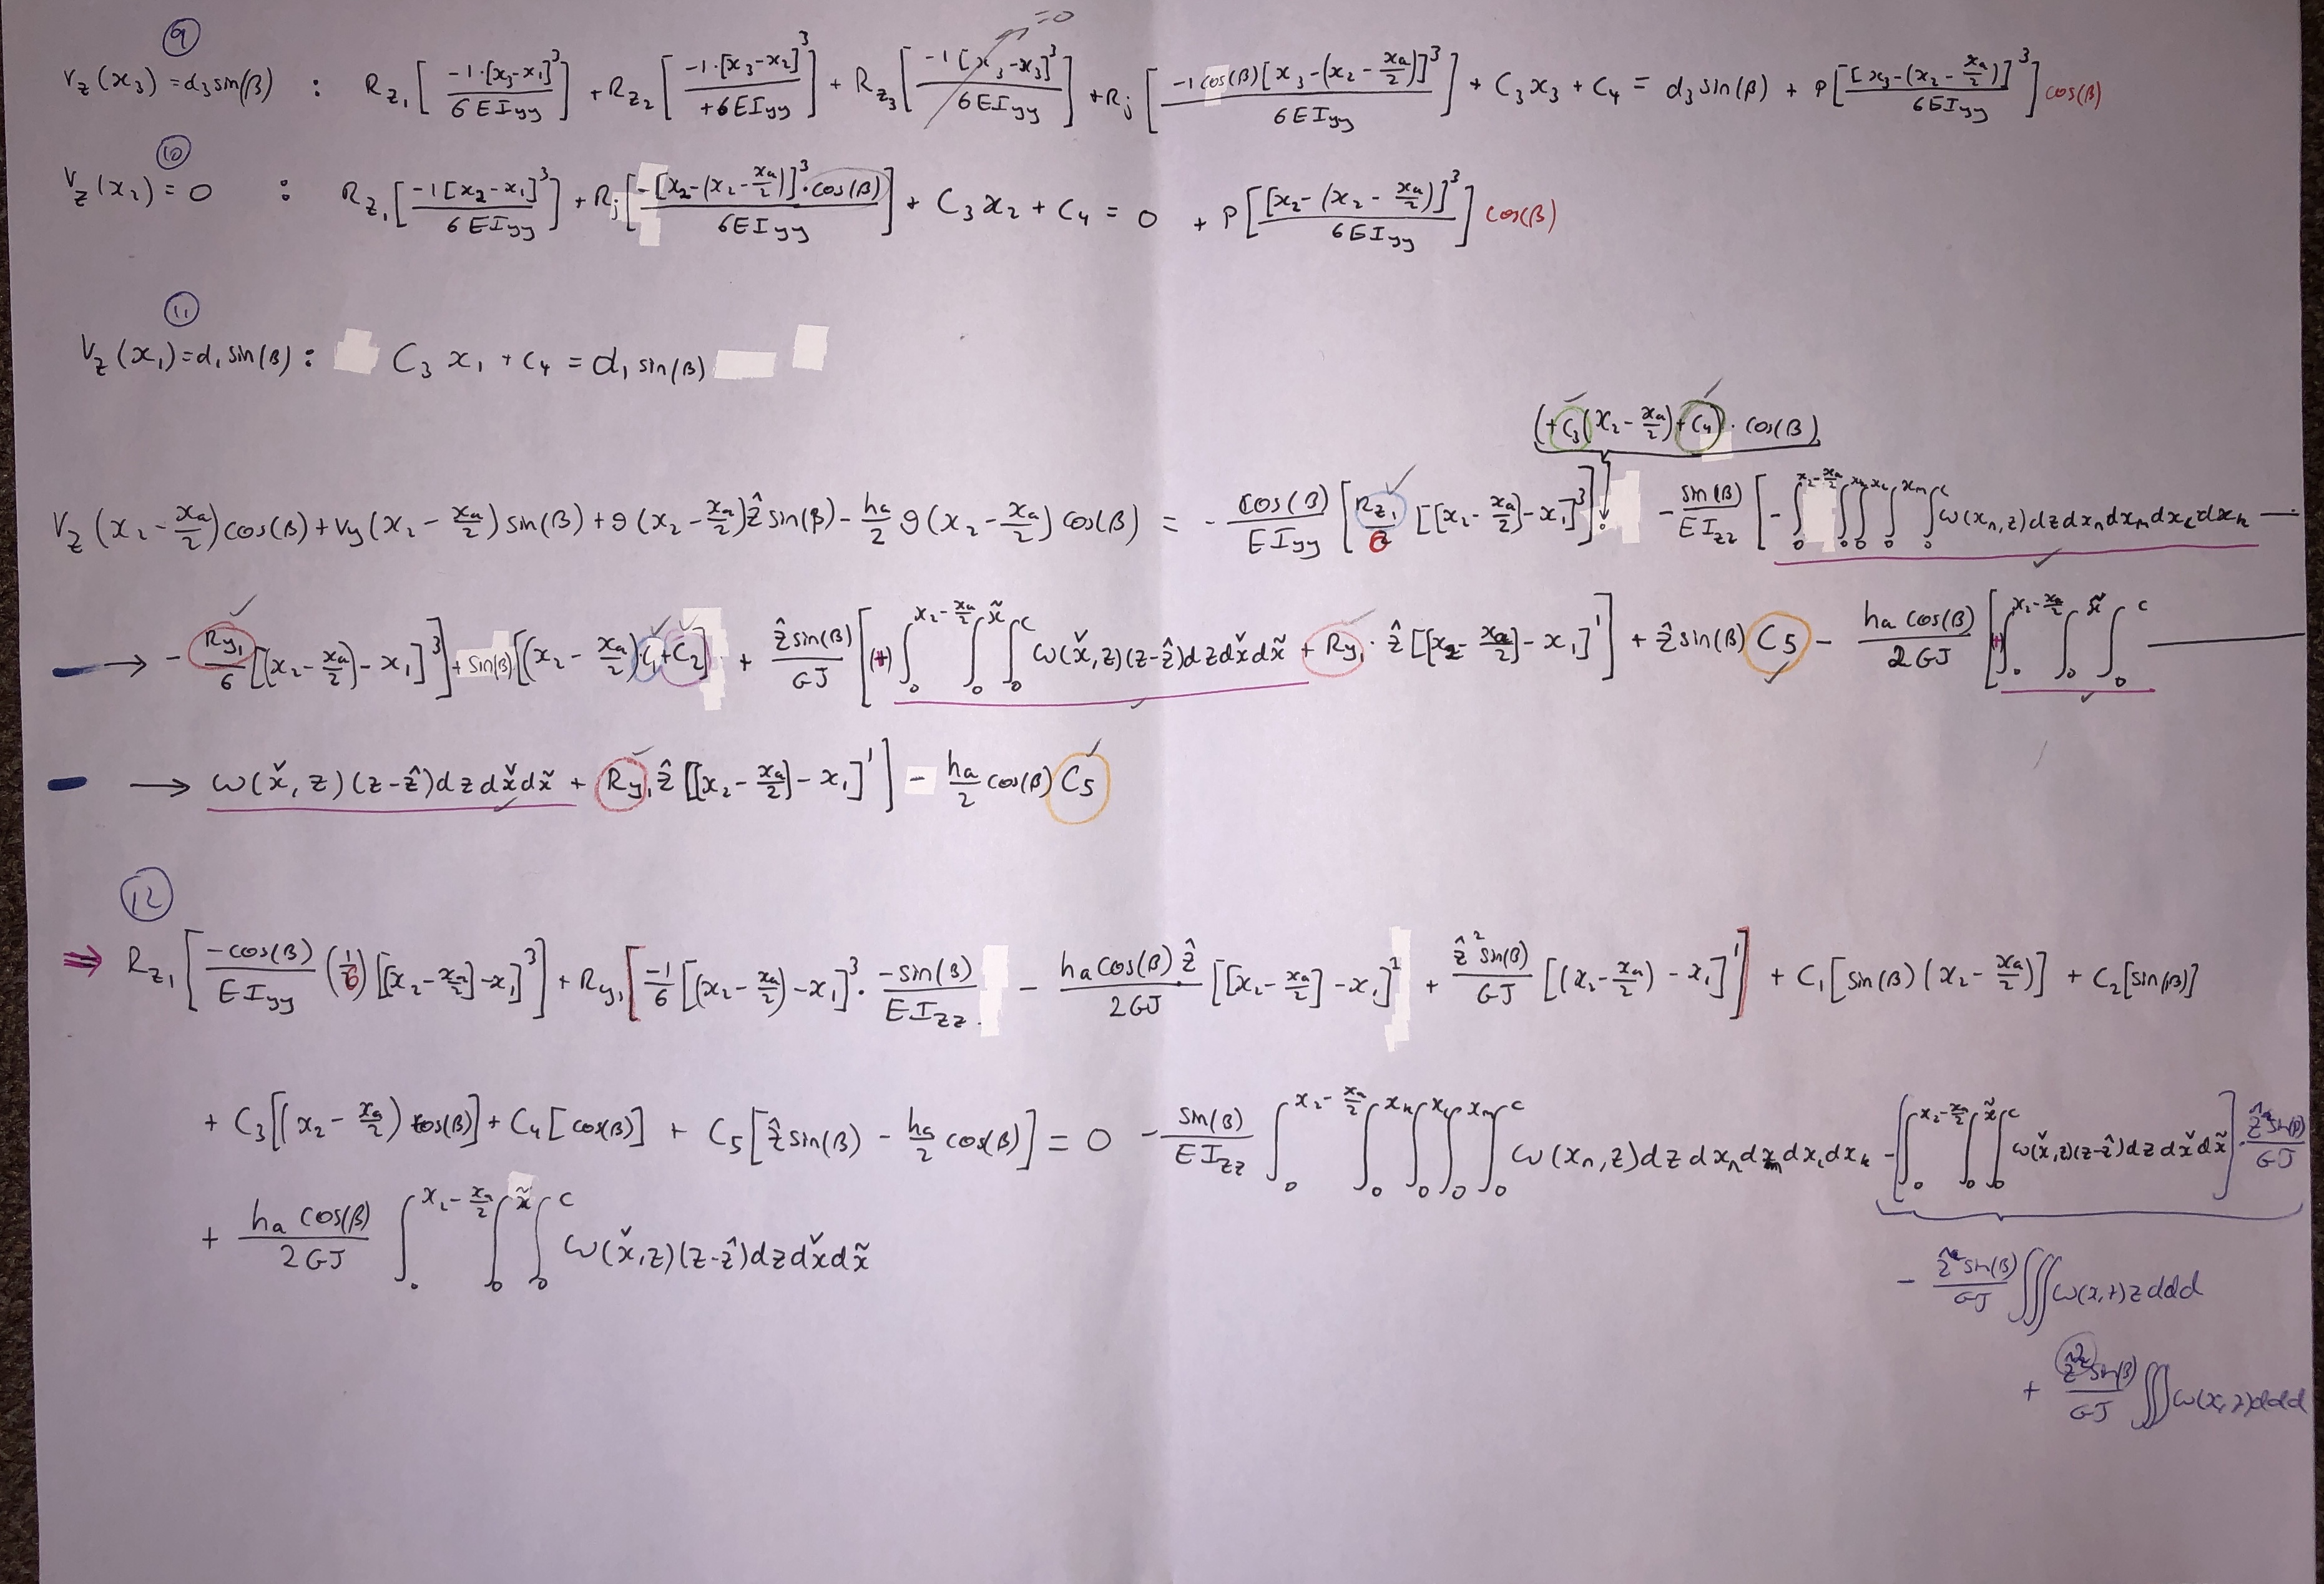 ⑨
=0
V_z(x₃) = d₃ sin(β) : R_z₁ [ -1·[x₃-x₁]³ / 6EI_yy ] + R_z₂ [ -1·[x₃-x₂]³ / +6EI_yy ] + R_z₃ [ -1[x₃-x₃]³ / 6EI_yy ] + R_j [ -1 cos(β)[x₃-(x₂-x_a/2)]³ / 6EI_yy ] + C₃x₃ + C₄ = d₃ sin(β) + P [ [x₃-(x₂-x_a/2)]³ / 6EI_yy ] cos(β)
⑩
V_z(x₂) = 0 : R_z₁ [ -1[x₂-x₁]³ / 6EI_yy ] + R_j [ -[x₂-(x₂-x_a/2)]³·cos(β) / 6EI_yy ] + C₃x₂ + C₄ = 0 + P [ [x₂-(x₂-x_a/2)]³ / 6EI_yy ] cos(β)
⑪
V_z(x₁) = d₁ sin(β) : C₃x₁ + C₄ = d₁ sin(β)
(+C₃(x₂-x_a/2)+C₄)·cos(β)
V_z(x₂-x_a/2)cos(β) + V_y(x₂-x_a/2) sin(β) + θ(x₂-x_a/2)ẑ sin(β) - h_a/2 θ(x₂-x_a/2) cos(β) = - cos(β)/EI_yy [ R_z₁/6 [[x₂-x_a/2]-x₁]³ ] - sin(β)/EI_zz [ - ∫₀^(x₂-x_a/2) ∫₀^x_k ∫₀^x_l ∫₀^x_m ∫₀^c ω(x_n,z)dz dx_n dx_m dx_l dx_k —
→ - R_y₁/6 [[x₂-x_a/2]-x₁]³ ] + sin(β)[(x₂-x_a/2)C₁+C₂] + ẑ sin(β)/GJ [ (+) ∫₀^(x₂-x_a/2) ∫₀^x̃ ∫₀^c ω(x̌,z)(z-ẑ)dz dx̌ dx̃ + R_y₁·ẑ [[x₂-x_a/2]-x₁]¹ ] + ẑ sin(β) C5 - h_a cos(β)/2GJ [ (+) ∫₀^(x₂-x_a/2) ∫₀^x̃ ∫₀^c —
→ ω(x̌,z)(z-ẑ)dz dx̌ dx̃ + R_y₁ ẑ [[x₂-x_a/2]-x₁]¹ ] - h_a/2 cos(β) C5
⑫
⇒ R_z₁ [ -cos(β)/EI_yy (1/6) [[x₂-x_a/2]-x₁]³ ] + R_y₁ [ -1/6 [(x₂-x_a/2)-x₁]³ · -sin(β)/EI_zz - h_a cos(β) ẑ/2GJ [[x₂-x_a/2]-x₁]¹ + ẑ² sin(β)/GJ [(x₂-x_a/2)-x₁]¹ ] + C₁[sin(β)(x₂-x_a/2)] + C₂[sin(β)]
+ C₃[(x₂-x_a/2) cos(β)] + C₄[cos(β)] + C₅[ẑ sin(β) - h_a/2 cos(β)] = 0 - sin(β)/EI_zz ∫₀^(x₂-x_a/2) ∫₀^x_k ∫₀^x_l ∫₀^x_m ∫₀^c ω(x_n,z)dz dx_n dx_m dx_l dx_k - [ ∫₀^(x₂-x_a/2) ∫₀^x̃ ∫₀^c ω(x̌,z)(z-ẑ)dz dx̌ dx̃ ]· ẑ sin(β)/GJ
+ h_a cos(β)/2GJ ∫₀^(x₂-x_a/2) ∫₀^x̃ ∫₀^c ω(x̌,z)(z-ẑ)dz dx̌ dx̃
- ẑ sin(β)/GJ ∫∫∫ ω(x,z) z ddd
+ ẑ² sin(β)/GJ ∫∫∫ ω(x,z) ddd